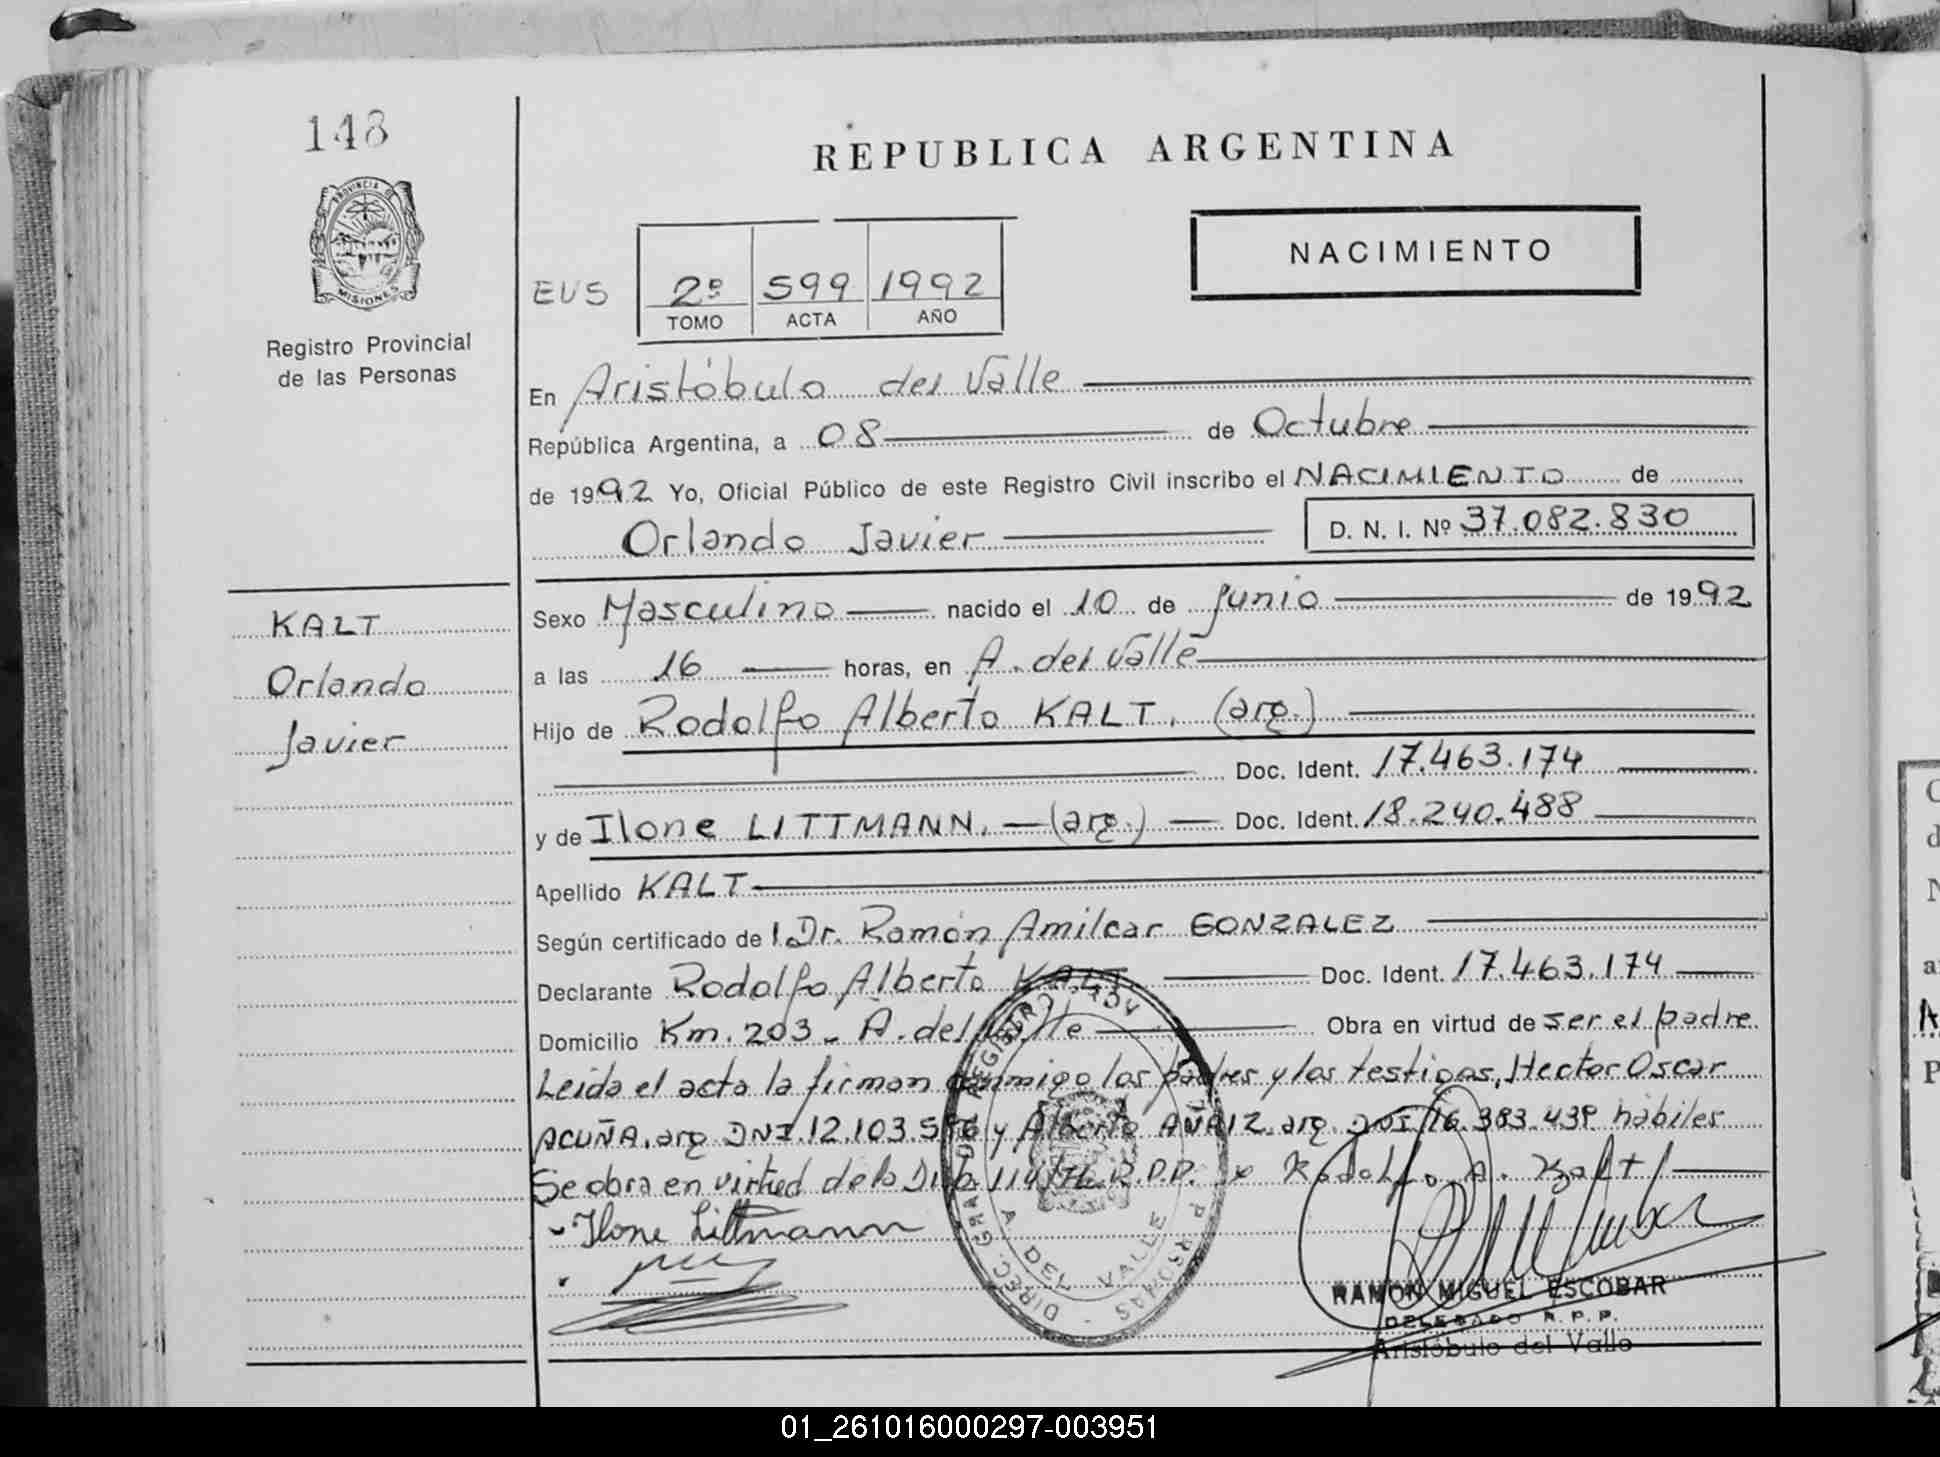 148
PROVINCIA DE
MISIONES
Registro Provincial
de las Personas
REPUBLICA ARGENTINA
NACIMIENTO
EUS 2º 599 1992
TOMO ACTA AÑO
En Aristóbulo del Valle
República Argentina, a 08 de Octubre
de 1992 Yo, Oficial Público de este Registro Civil inscribo el NACIMIENTO de
Orlando Javier D. N. I. Nº 37.082.830
KALT
Orlando
Javier
Sexo Masculino nacido el 10 de Junio de 1992
a las 16 horas, en A. del Valle
Hijo de Rodolfo Alberto KALT. (arg.)
Doc. Ident. 17.463.174
y de Ilone LITTMANN. (arg.) Doc. Ident. 18.240.488
Apellido KALT
Según certificado de l Dr. Ramón Amilcar GONZALEZ
Declarante Rodolfo Alberto KALT Doc. Ident. 17.463.174
Domicilio Km. 203 - A. del Valle Obra en virtud de ser el padre
Leída el acta la firman conmigo los padres y los testigos, Hector Oscar
ACUÑA. arg DNI. 12.103.5 6 y Alberto arg. DNI 16.383.439 hábiles
Se obra en virtud de la R.P.P. Rodolfo A. Kalt
Ilone Littmann
DIREC. GRAL DEL REGISTRO PERSONAS
A DEL VALLE
RAMON MIGUEL ESCOBAR
DELEGADO R.P.P.
Aristóbulo del Valle
01_261016000297-003951